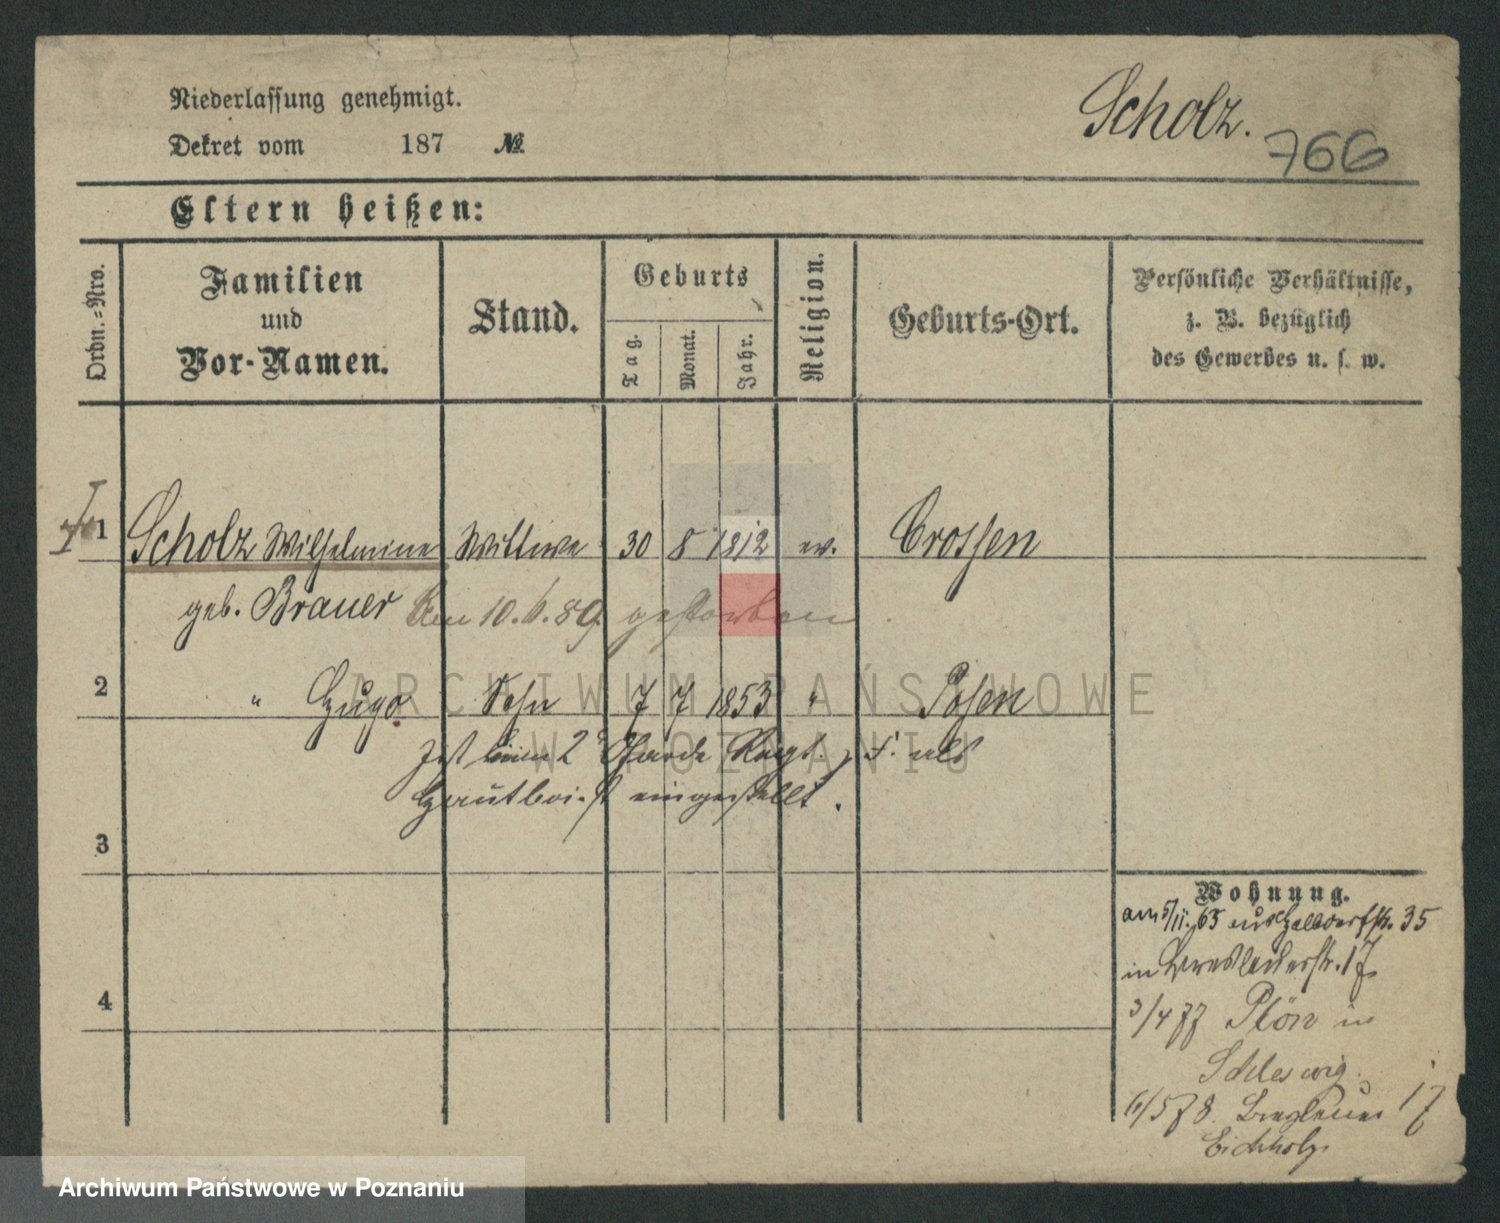 Niederlassung genehmigt.
Scholz.
766
Dekret vom 187 №
Eltern heißen:
Ordn.-Nro.
Familien
und
Vor-Namen.
Stand.
Geburts
Tag.
Monat.
Jahr.
Religion.
Geburts-Ort.
Persönliche Verhältnisse,
z. B. bezüglich
des Gewerbes u. s. w.
1 Scholz Wilhelmine Wittwe 30 8 1812 ev. Crossen
geb. Brauer Am 10.6.89 gestorben
2 " Hugo Sohn 7 7 1853 " Posen
Ist beim 2 Garde Regt. z. F. als
Hautboist eingestellt.
3
4
Wohnung.
am 5/11.65 aus Halbdorfstr. 35
in Breslauerstr. 17
3/4 77 Plön in
Schleswig.
6/5 78. Breslauer 17
Eichholz.
ARCHIWUM PAŃSTWOWE
W POZNANIU
Archiwum Państwowe w Poznaniu